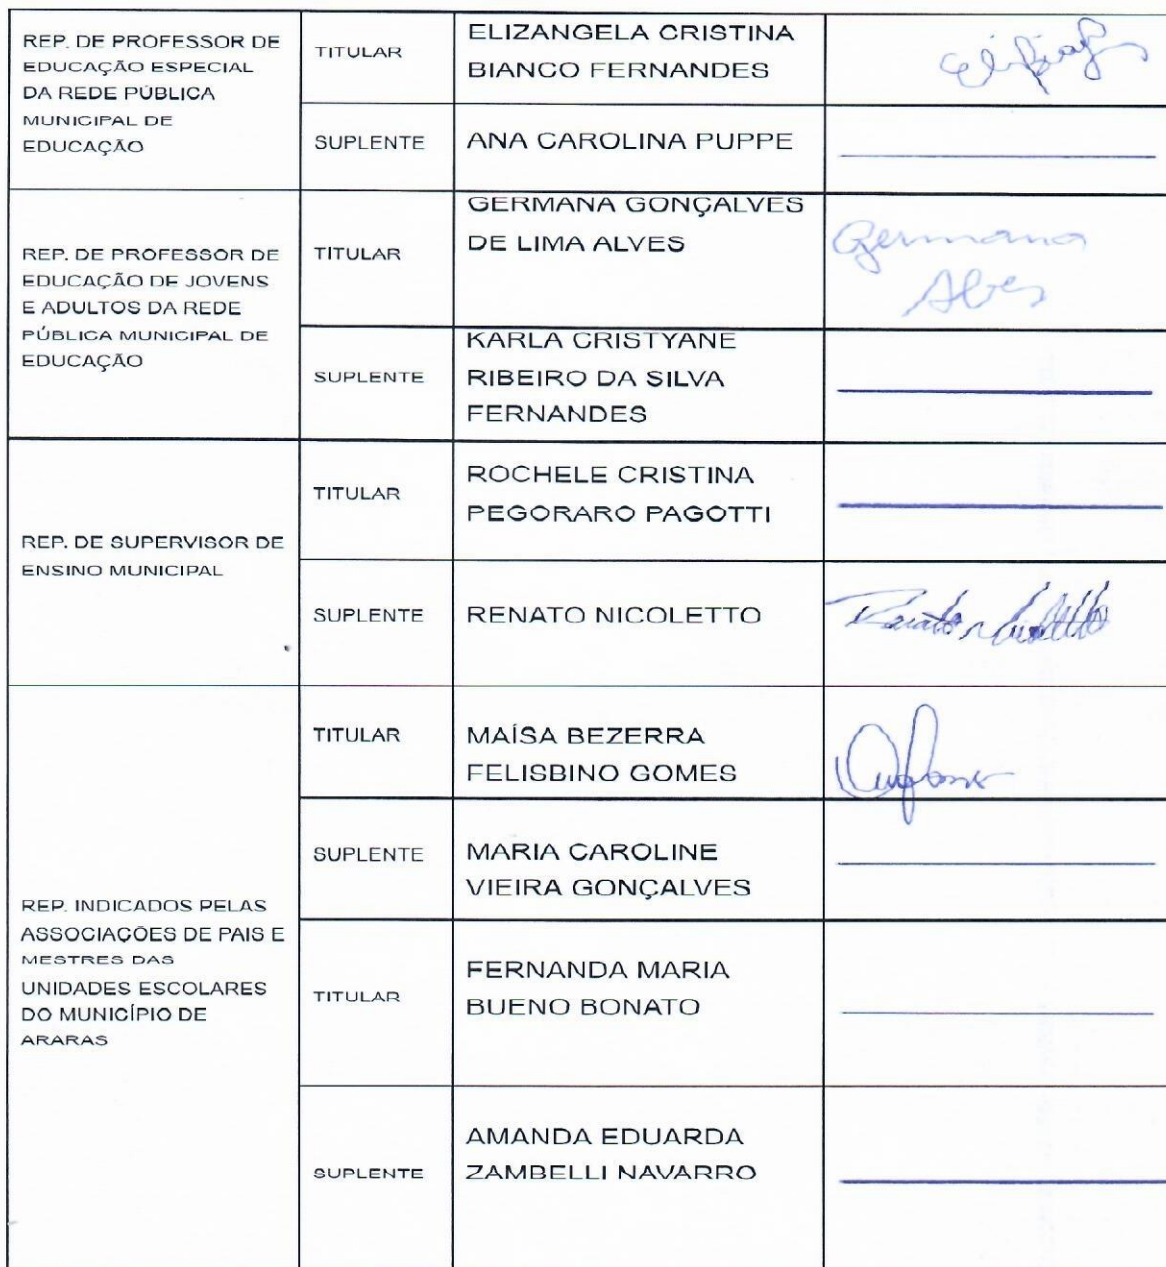 REP. DE PROFESSOR DE
EDUCAÇÃO ESPECIAL
DA REDE PÚBLICA
MUNICIPAL DE
EDUCAÇÃO
TITULAR
ELIZANGELA CRISTINA
BIANCO FERNANDES
SUPLENTE
ANA CAROLINA PUPPE
REP. DE PROFESSOR DE
EDUCAÇÃO DE JOVENS
E ADULTOS DA REDE
PÚBLICA MUNICIPAL DE
EDUCAÇÃO
TITULAR
GERMANA GONÇALVES
DE LIMA ALVES
Germana
Alves
SUPLENTE
KARLA CRISTYANE
RIBEIRO DA SILVA
FERNANDES
REP. DE SUPERVISOR DE
ENSINO MUNICIPAL
TITULAR
ROCHELE CRISTINA
PEGORARO PAGOTTI
SUPLENTE
RENATO NICOLETTO
Renato Nicoletto
REP. INDICADOS PELAS
ASSOCIAÇÕES DE PAIS E
MESTRES DAS
UNIDADES ESCOLARES
DO MUNICÍPIO DE
ARARAS
TITULAR
MAÍSA BEZERRA
FELISBINO GOMES
SUPLENTE
MARIA CAROLINE
VIEIRA GONÇALVES
TITULAR
FERNANDA MARIA
BUENO BONATO
SUPLENTE
AMANDA EDUARDA
ZAMBELLI NAVARRO